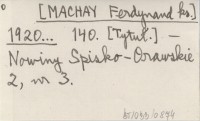 [MACHAY Ferdynand ks.]
1920... 140. [Tytuł.] —
Nowiny Spisko-Orawskie
2, nr 3.